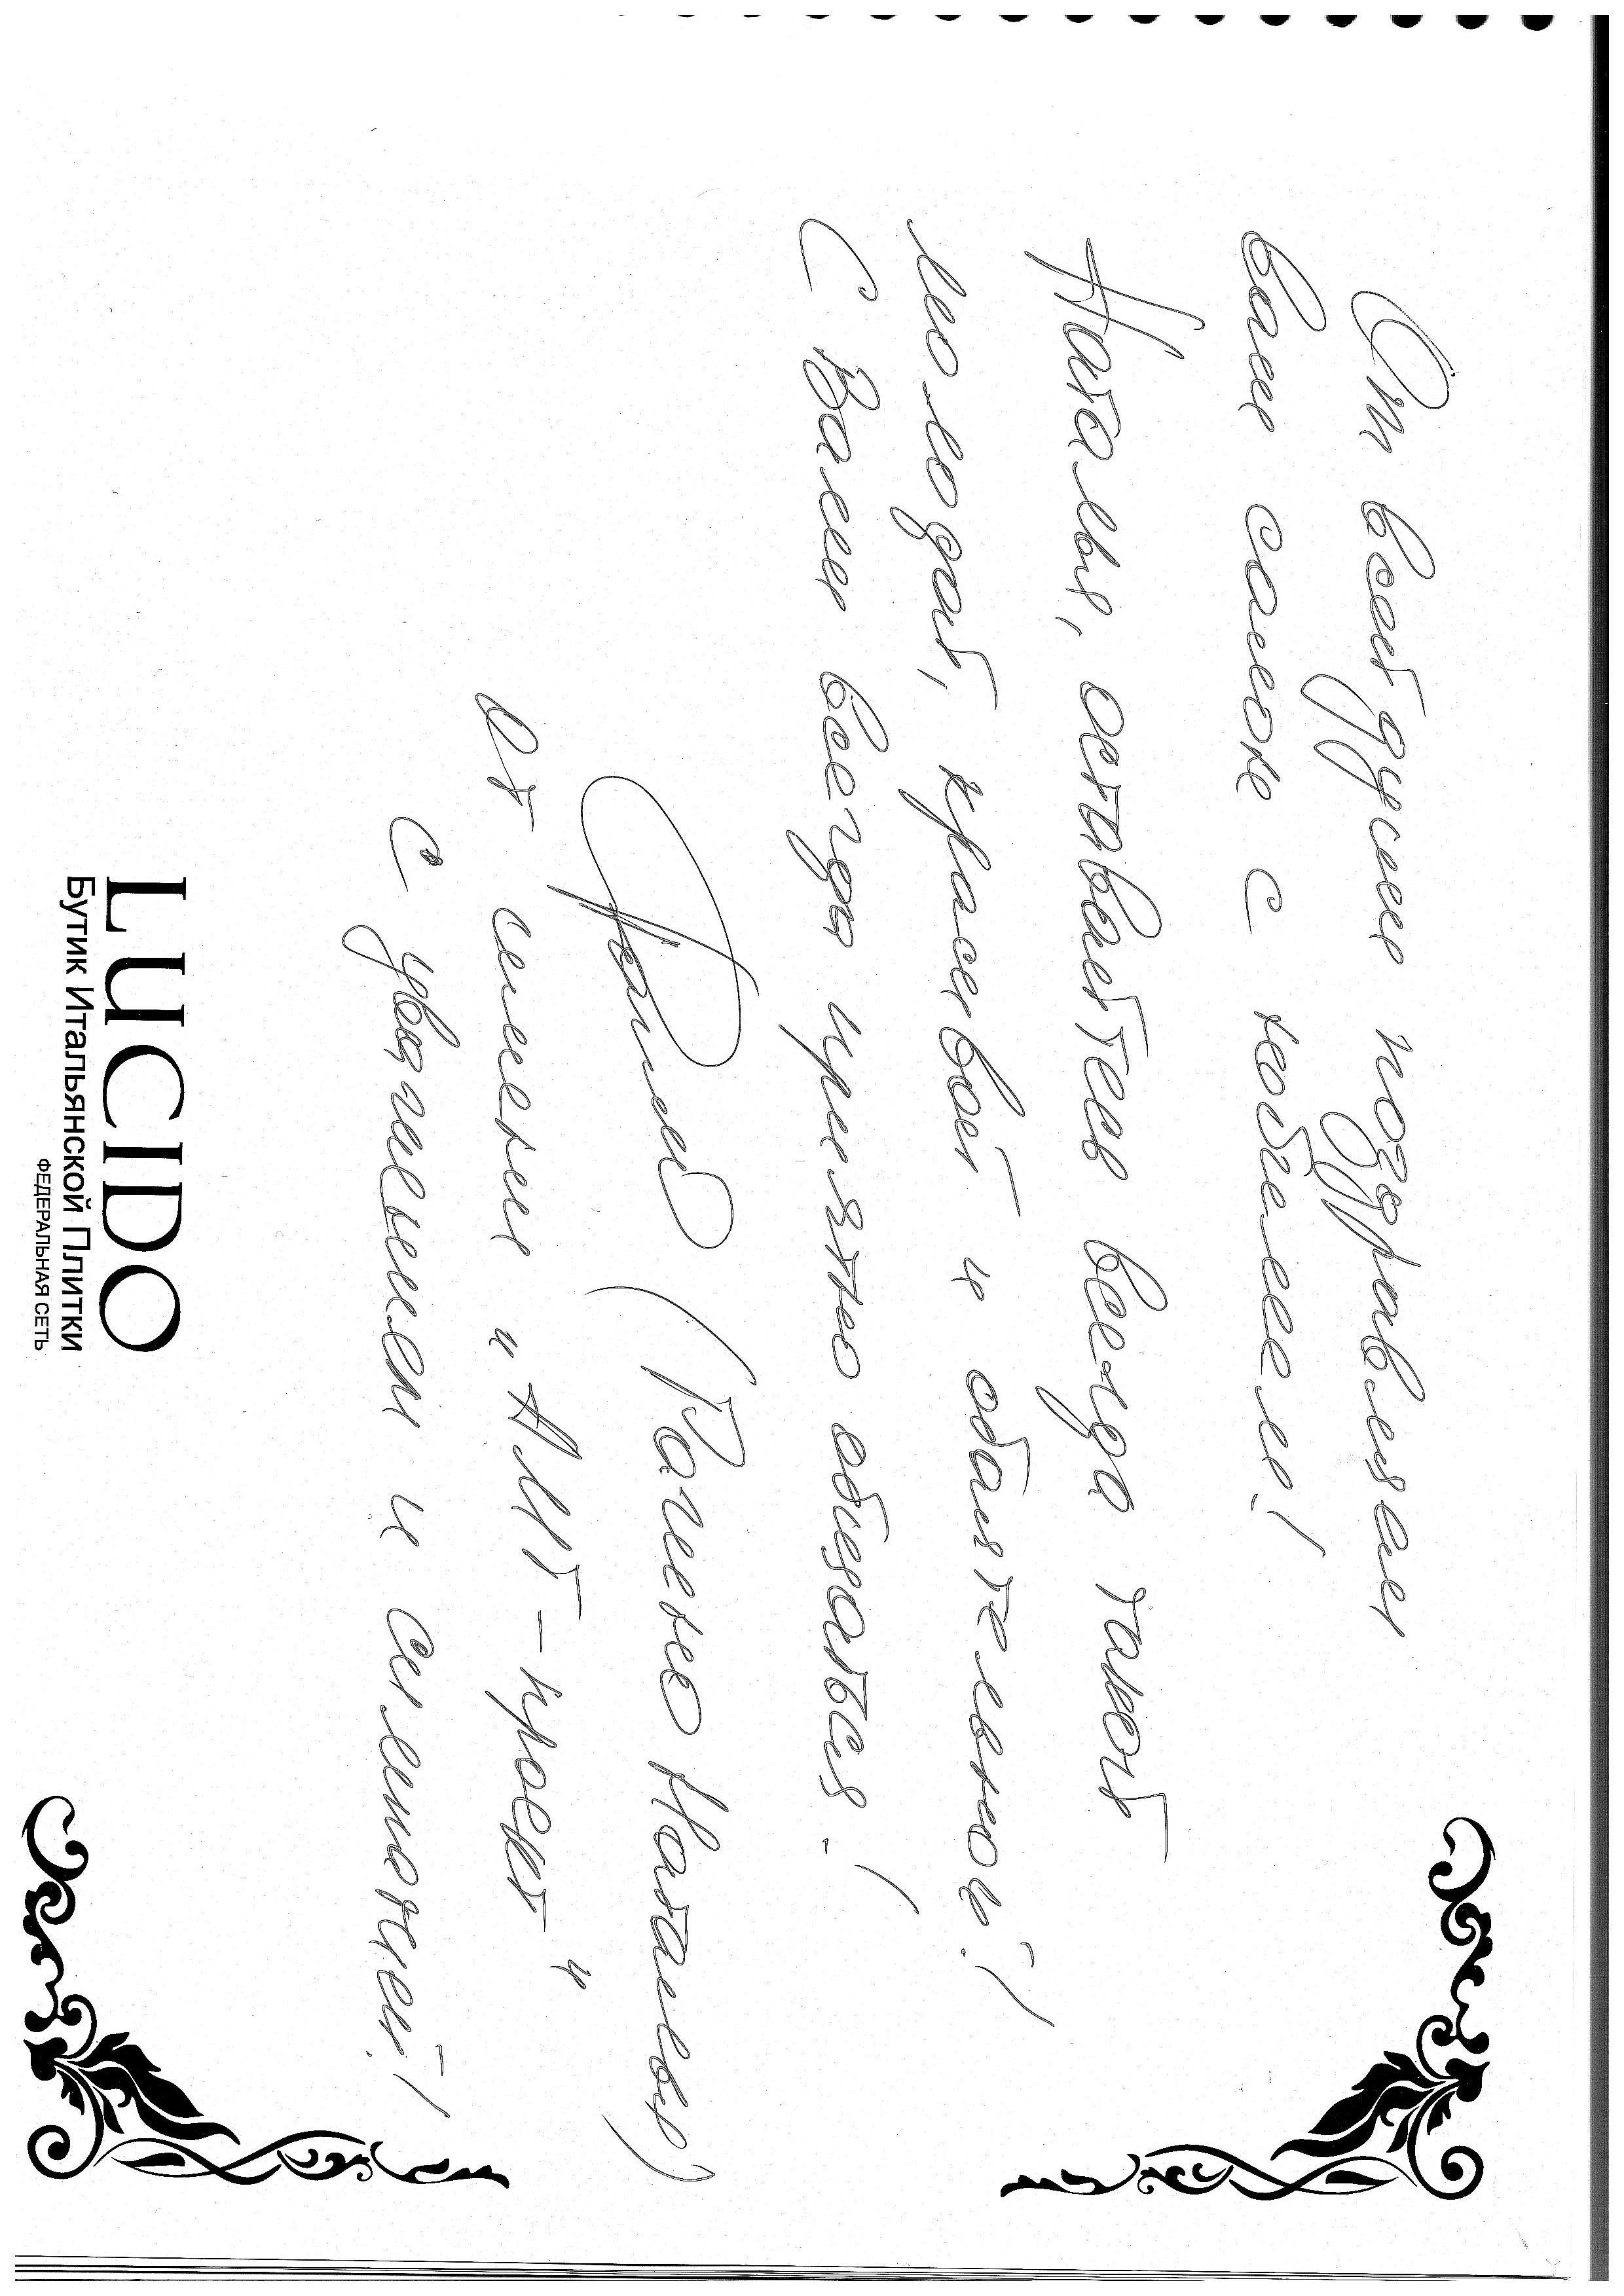 От всей души поздравляем
вас самих с юбилеем!
Наталья, оставайтесь всегда такой
молодой, красивой и обаятельной!
С Вами всегда приятно общаться!
(Раченко Наталья)
От имени "АМТ-проект"
с уважением и симпатией!
LUCIDO
Бутик Итальянской Плитки
ФЕДЕРАЛЬНАЯ СЕТЬ